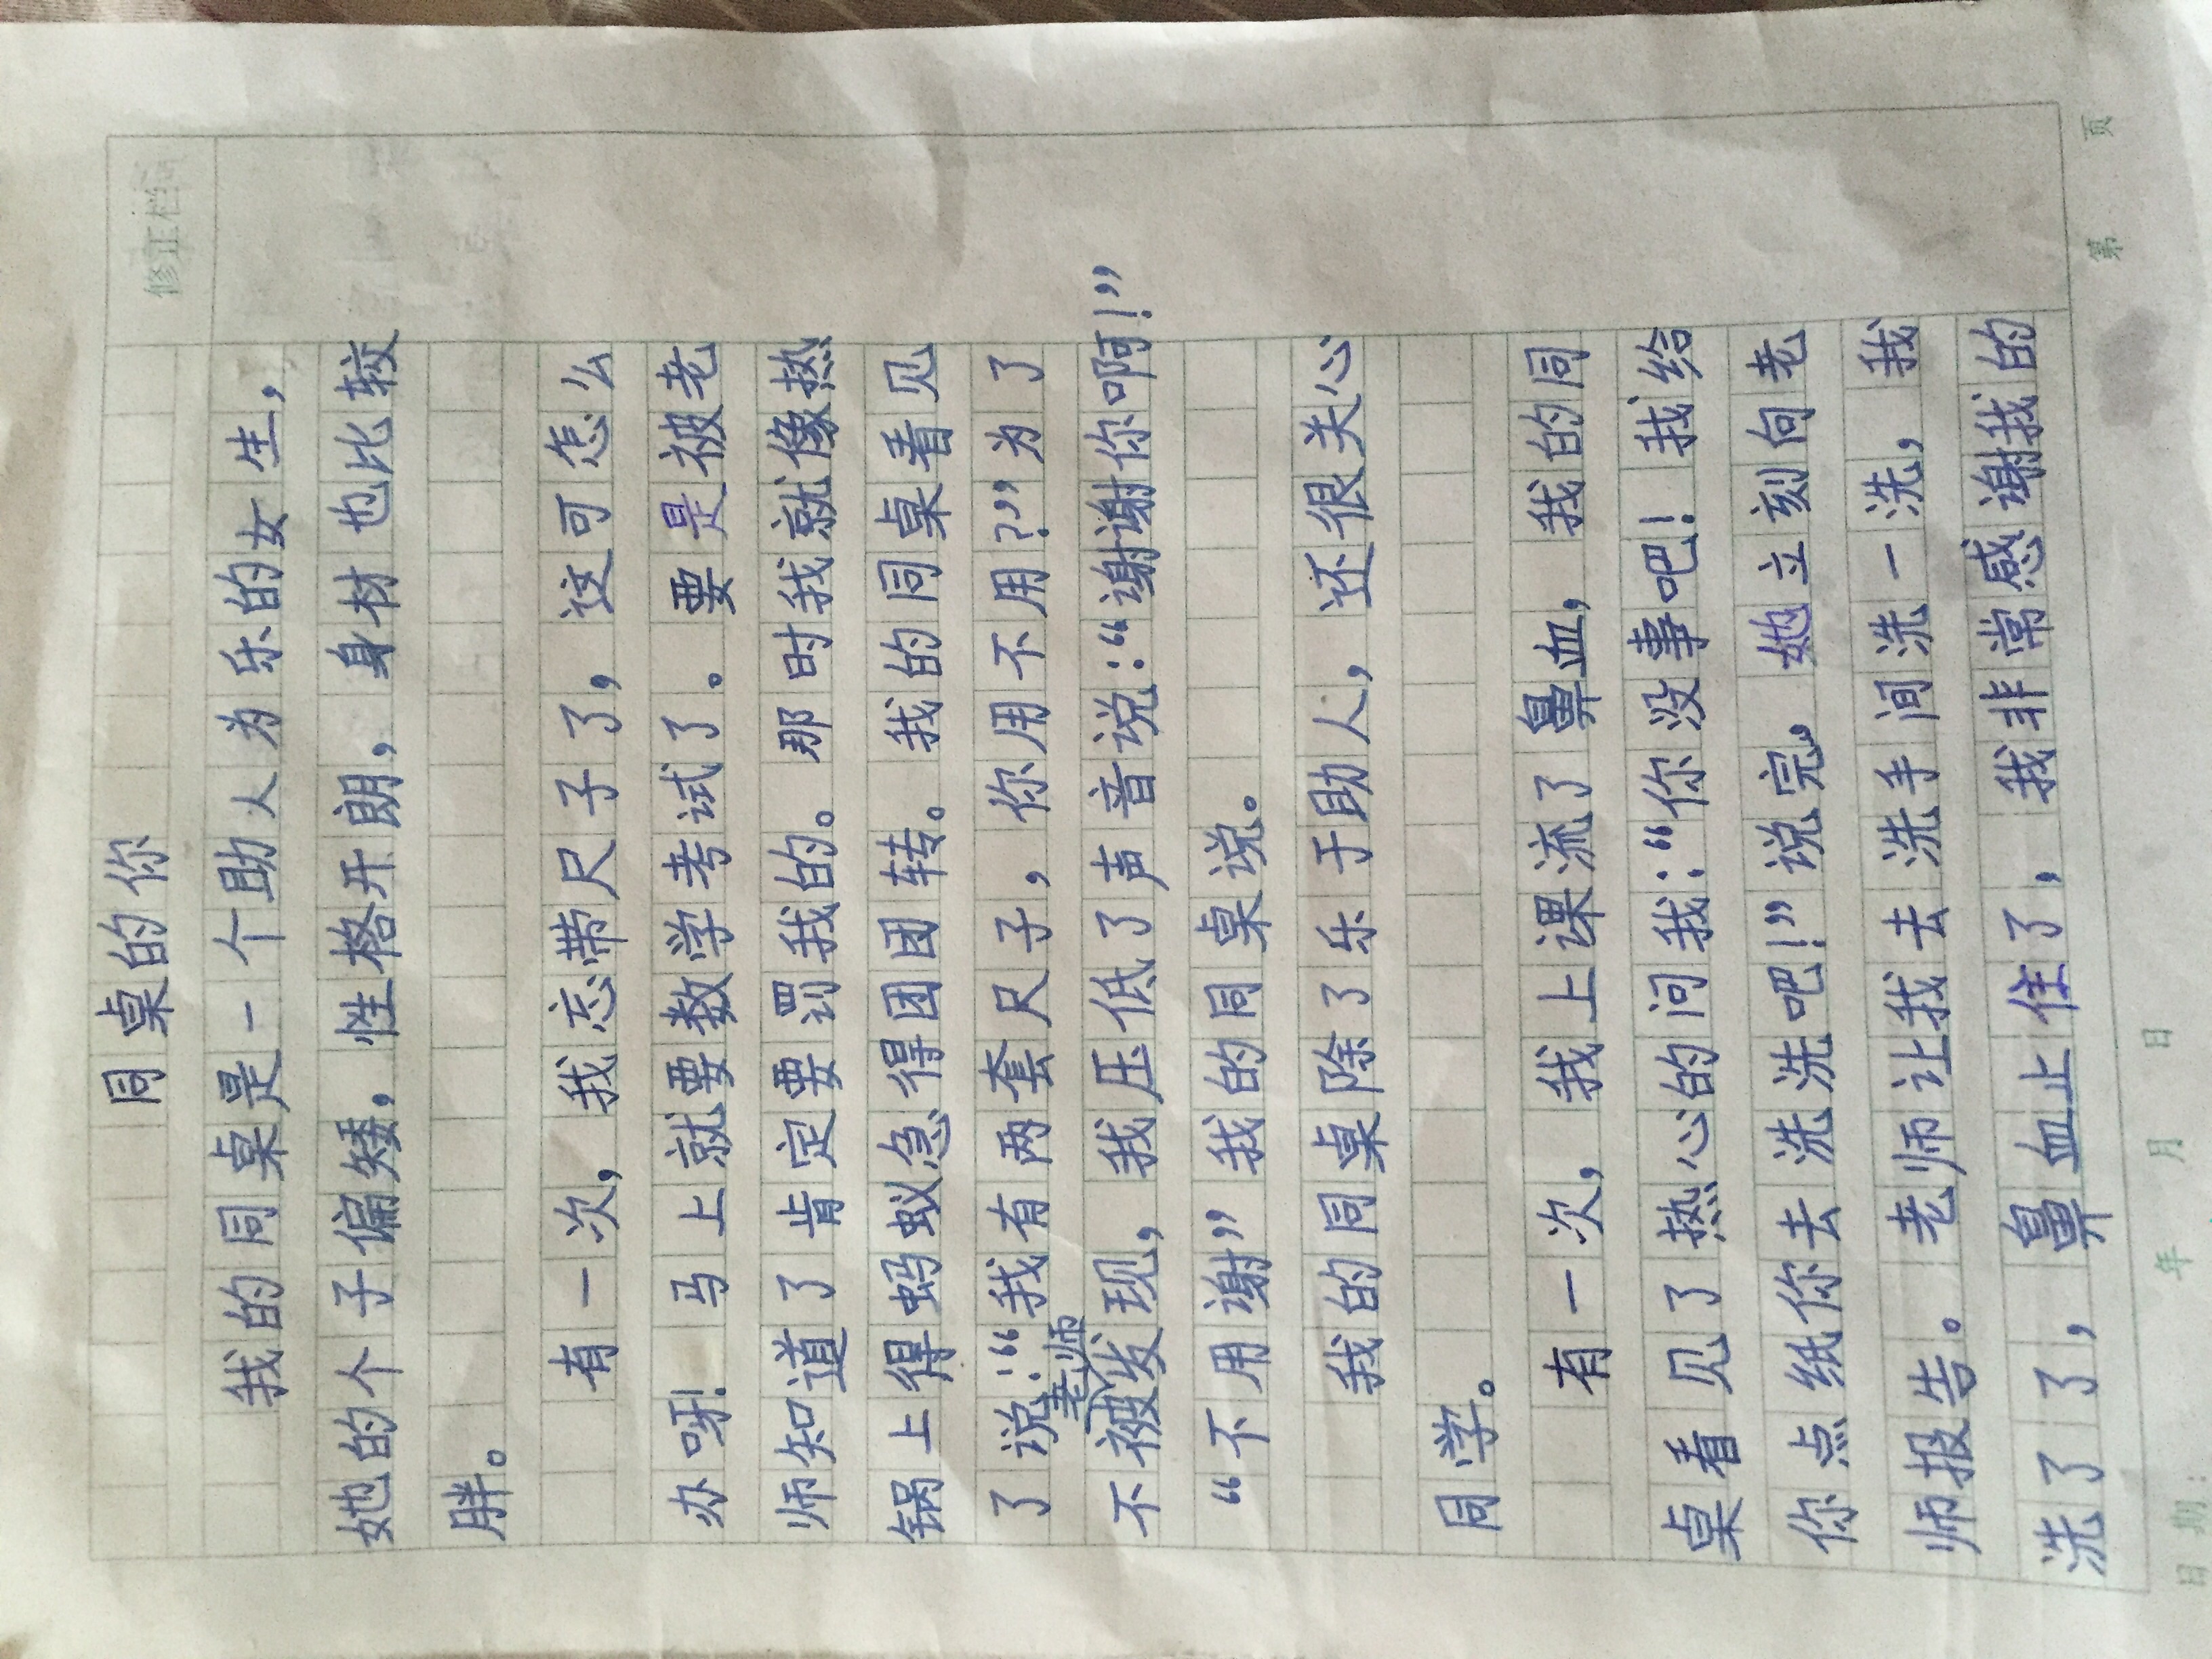 修正栏
同桌的你
我的同桌是一个助人为乐的女生，
她的个子偏矮，性格开朗，身材也比较
胖。
有一次，我忘带尺子了，这可怎么
办呀！马上就要数学考试了。要是被老
师知道了肯定要罚我的。那时我就像热
锅上得蚂蚁急得团团转。我的同桌看见
了说：“我有两套尺子，你用不用？”为了
不被老师发现，我压低了声音说：“谢谢你啊！”
“不用谢”我的同桌说。
我的同桌除了乐于助人，还很关心
同学。
有一次，我上课流了鼻血，我的同
桌看见了热心的问我：“你没事吧！我给
你点纸你去洗洗吧！”说完。她立刻向老
师报告。老师让我去洗手间洗一洗，我
洗了了，鼻血止住了，我非常感谢我的
日期： 年 月 日 第 页